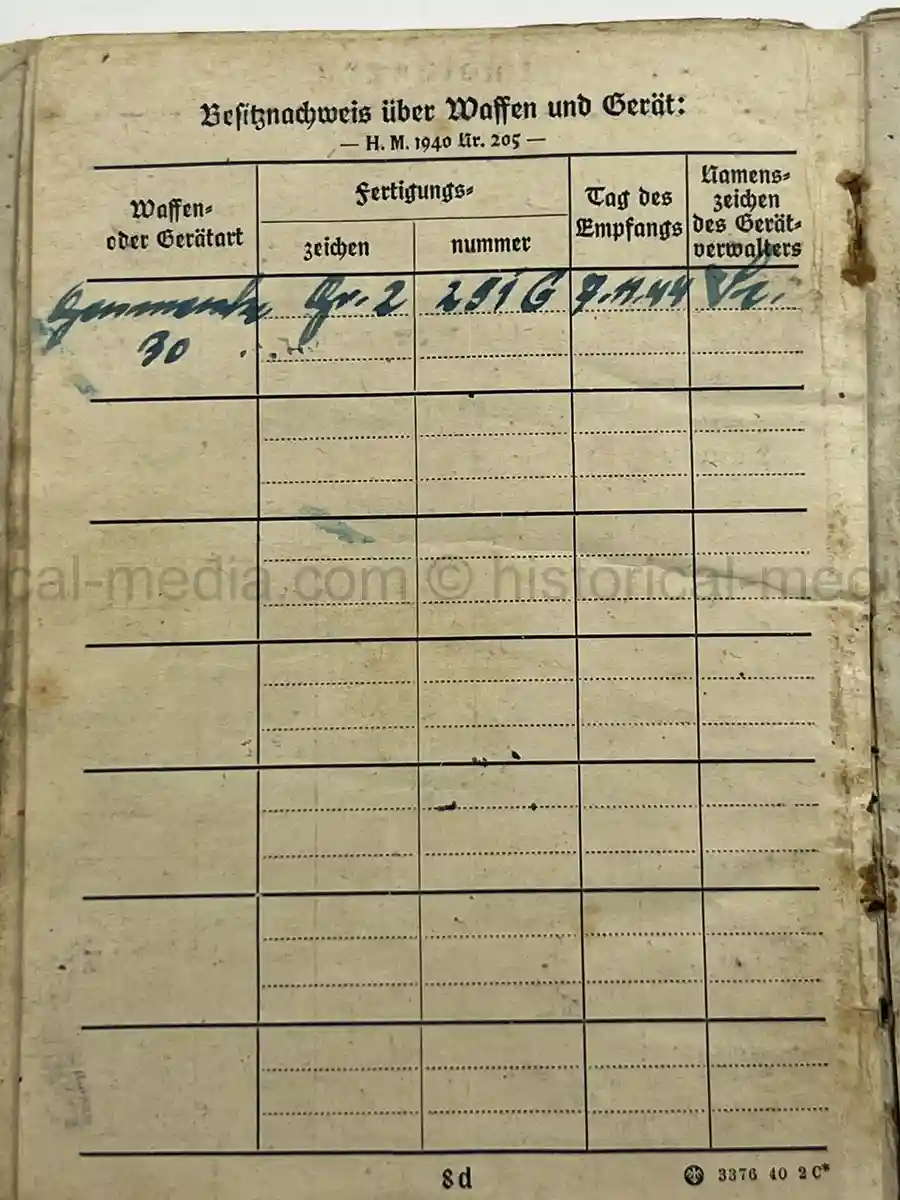 Besitznachweis über Waffen und Gerät:
— H. M. 1940 Nr. 205 —
Waffen-
oder Gerätart
Fertigungs-
zeichen
nummer
Tag des
Empfangs
Namens-
zeichen
des Gerät-
verwalters
Gr. 2 291 G 7.11.44
30
cal-media.com © historical-medi
8d
3376 40 2 C*